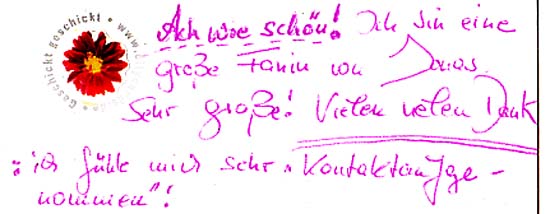 Geschickt geschickt • www.
Ach wie schön! Ich bin eine
große Fanin von Jonas.
Sehr große! Vielen vielen Dank
: ich fühle mich sehr "Kontaktaufge-
nommen"!